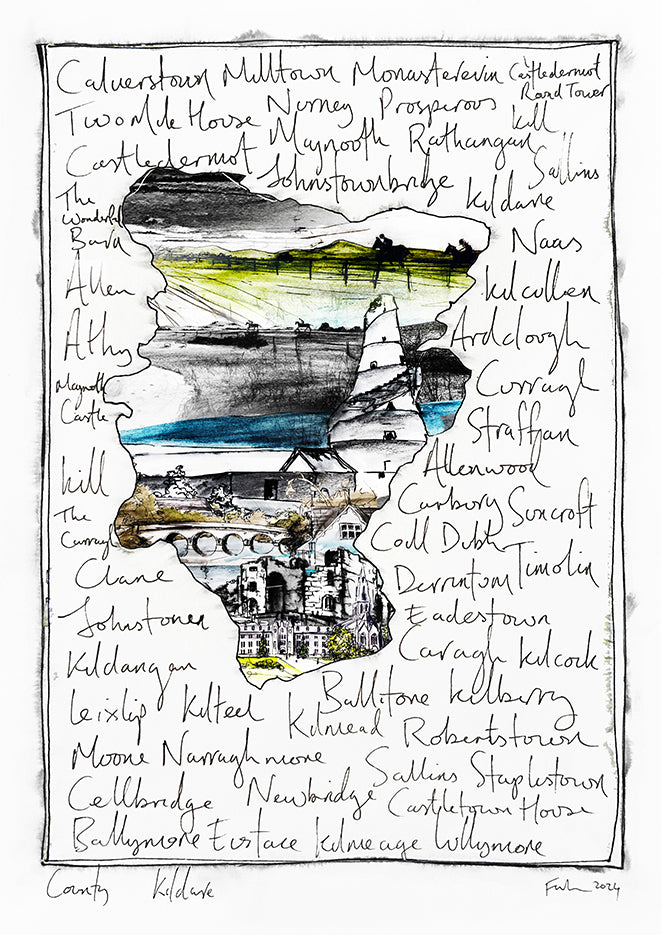 Calverstown Milltown Monasterevin Castledermot Round Tower
Two Mile House Nurney Prosperous Kill
Castledermot Maynooth Rathangan Sallins
Johnstownbridge Kildare
The Wonderful Barn
Naas
Allen
Kilcullen
Athy
Ardclough
Maynooth Castle
Curragh
Straffan
Kill
Allenwood
The Curragh
Carbury Suncroft
Coill Dubh
Clane
Derrinturn Timolin
Johnstown
Eadestown
Kildangan
Caragh Kilcock
Leixlip Kilteel Kilmead Ballitore Kilberry
Robertstown
Moone Narraghmore Sallins Staplestown
Cellbridge Newbridge Castletown House
Ballymore Eustace Kilmeage Lullymore
County Kildare
2024